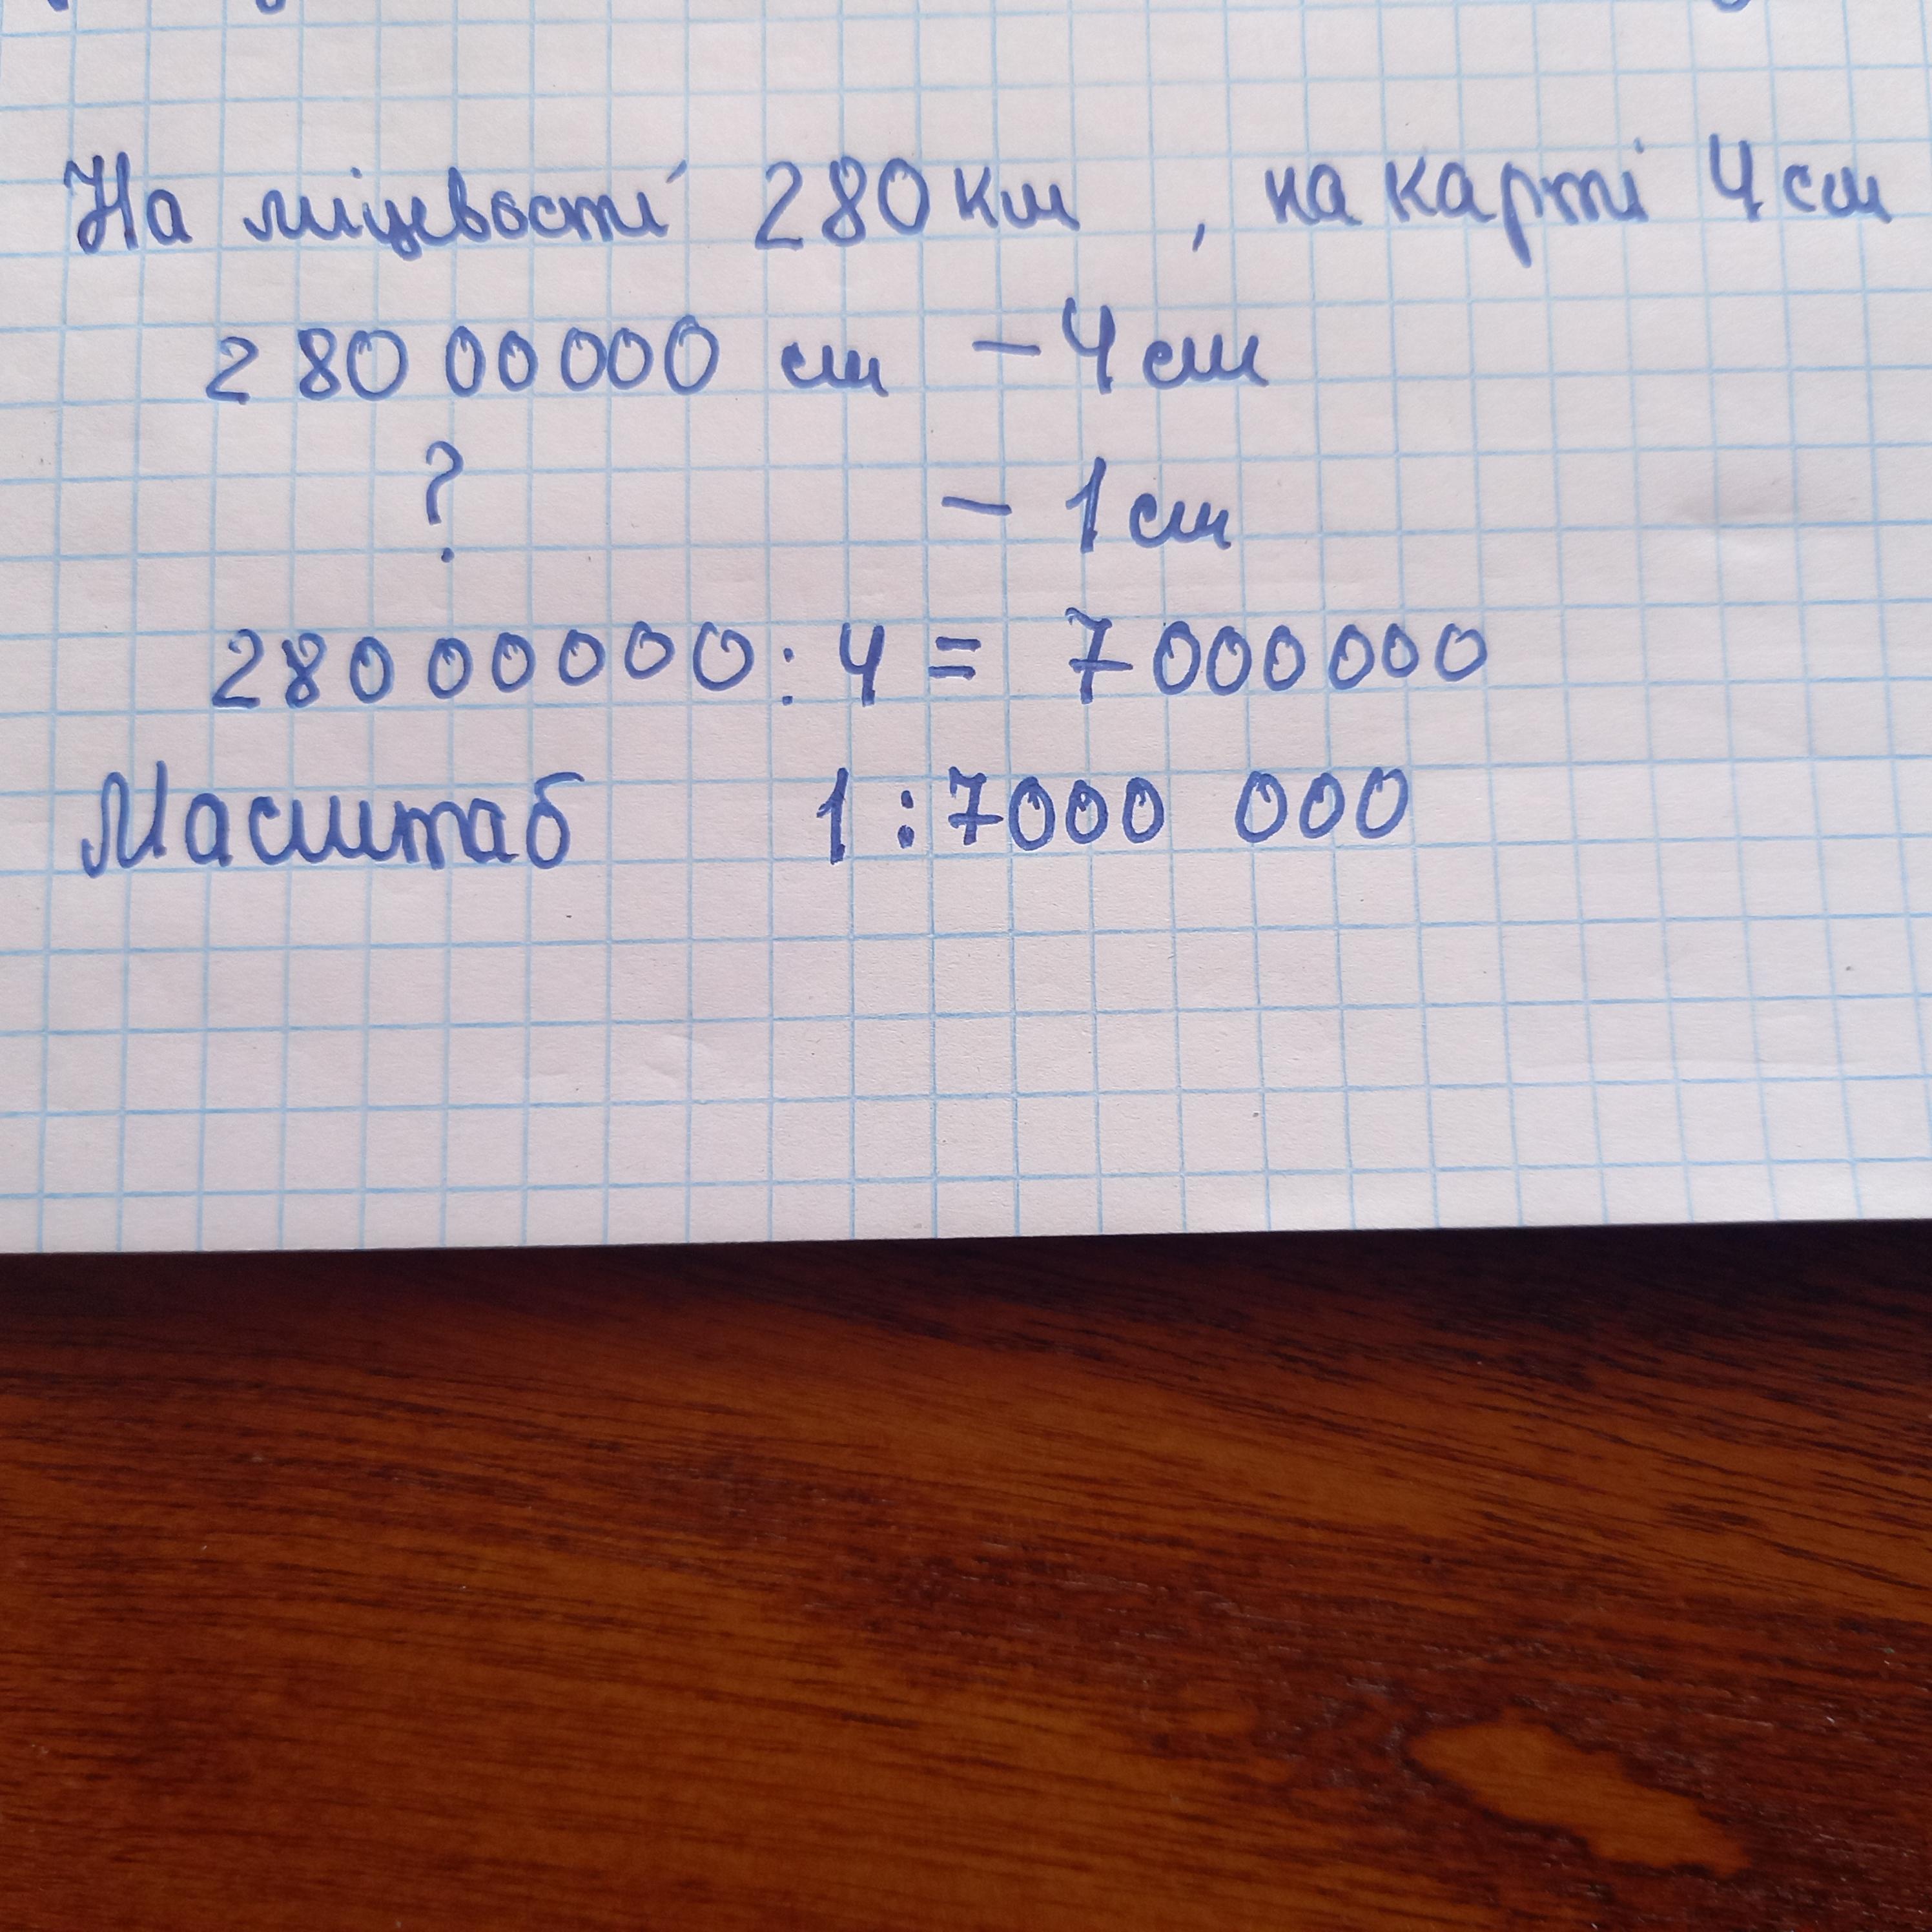 На міцевості 280 км , на карті 4 см
280 00000 см - 4 см
? - 1 см
28000000 : 4 = 7000000
Масштаб 1 : 7000 000